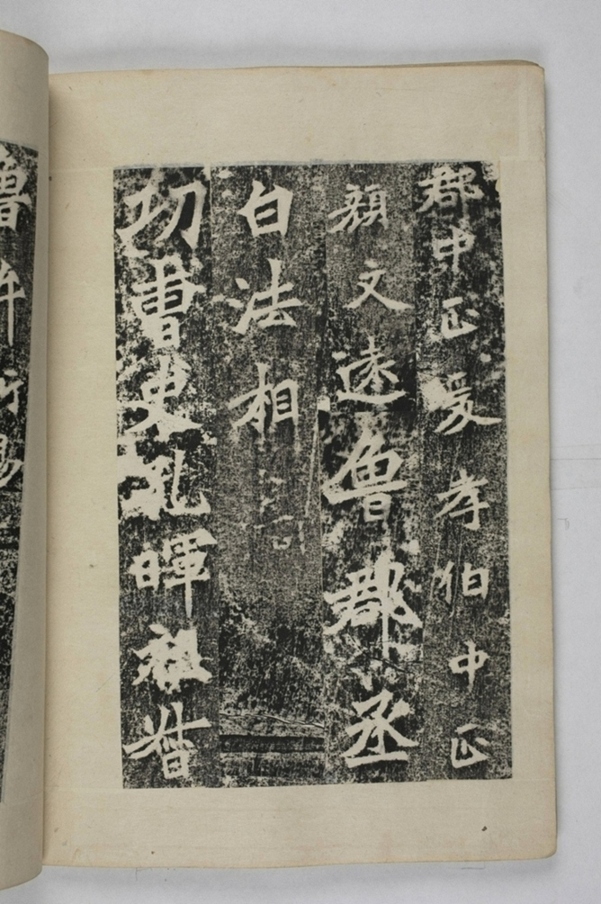 郡中正爰孝伯中正
顏文遠魯郡丞
白法相
功曹史孔暉祖督